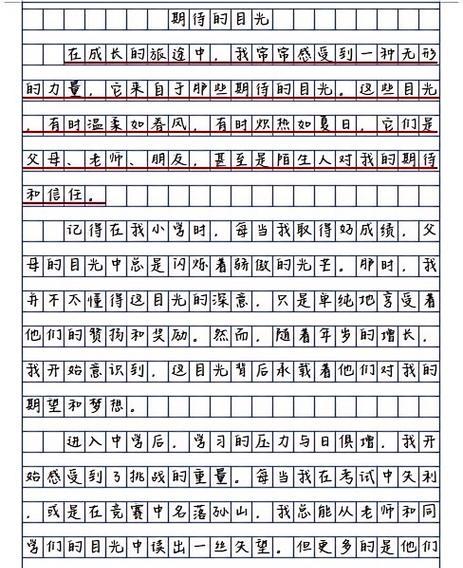 期待的目光
在成长的旅途中，我常常感受到一种无形
的力量，它来自于那些期待的目光。这些目光
，有时温柔如春风，有时炽热如夏日，它们是
父母、老师、朋友，甚至是陌生人对我的期待
和信任。
记得在我小学时，每当我取得好成绩，父
母的目光中总是闪烁着骄傲的光芒。那时，我
并不不懂得这目光的深意，只是单纯地享受着
他们的赞扬和奖励。然而，随着年岁的增长，
我开始意识到，这目光背后承载着他们对我的
期望和梦想。
进入中学后，学习的压力与日俱增，我开
始感受到了挑战的重量。每当我在考试中失利
，或是在竞赛中名落孙山，我总能从老师和同
学们的目光中读出一丝失望。但更多的是他们